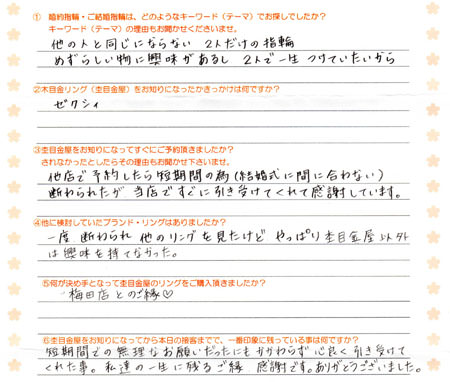 ① 婚約指輪・ご結婚指輪は、どのようなキーワード（テーマ）でお探しでしたか？
キーワード（テーマ）の理由もお聞かせくださいませ。
他の人と同じにならない 2人だけの指輪
めずらしい物に興味があるし 2人で一生 つけていたいから
②木目金リング（杢目金屋）をお知りになったきっかけは何ですか？
ゼクシィ
③杢目金屋をお知りになってすぐにご予約頂きましたか？
されなかったとしたらその理由もお聞かせ下さいませ。
他店で予約したら短期間の為(結婚式に間に合わない)
断わられたが 当店ですぐに引き受けてくれて感謝しています。
④他に検討していたブランド・リングはありましたか？
一度 断わられ 他のリングを見たけど やっぱり 杢目金屋 以外
は興味を持てなかった。
⑤何が決め手となって杢目金屋のリングをご購入頂きましたか？
梅田店とのご縁♡
⑥杢目金屋をお知りになってから本日の接客までで、一番印象に残っている事は何ですか？
短期間での無理なお願いだったにもかかわらず 心良く引き受けて
くれた事。私達の一生に残るご縁 感謝です。ありがとうございました。